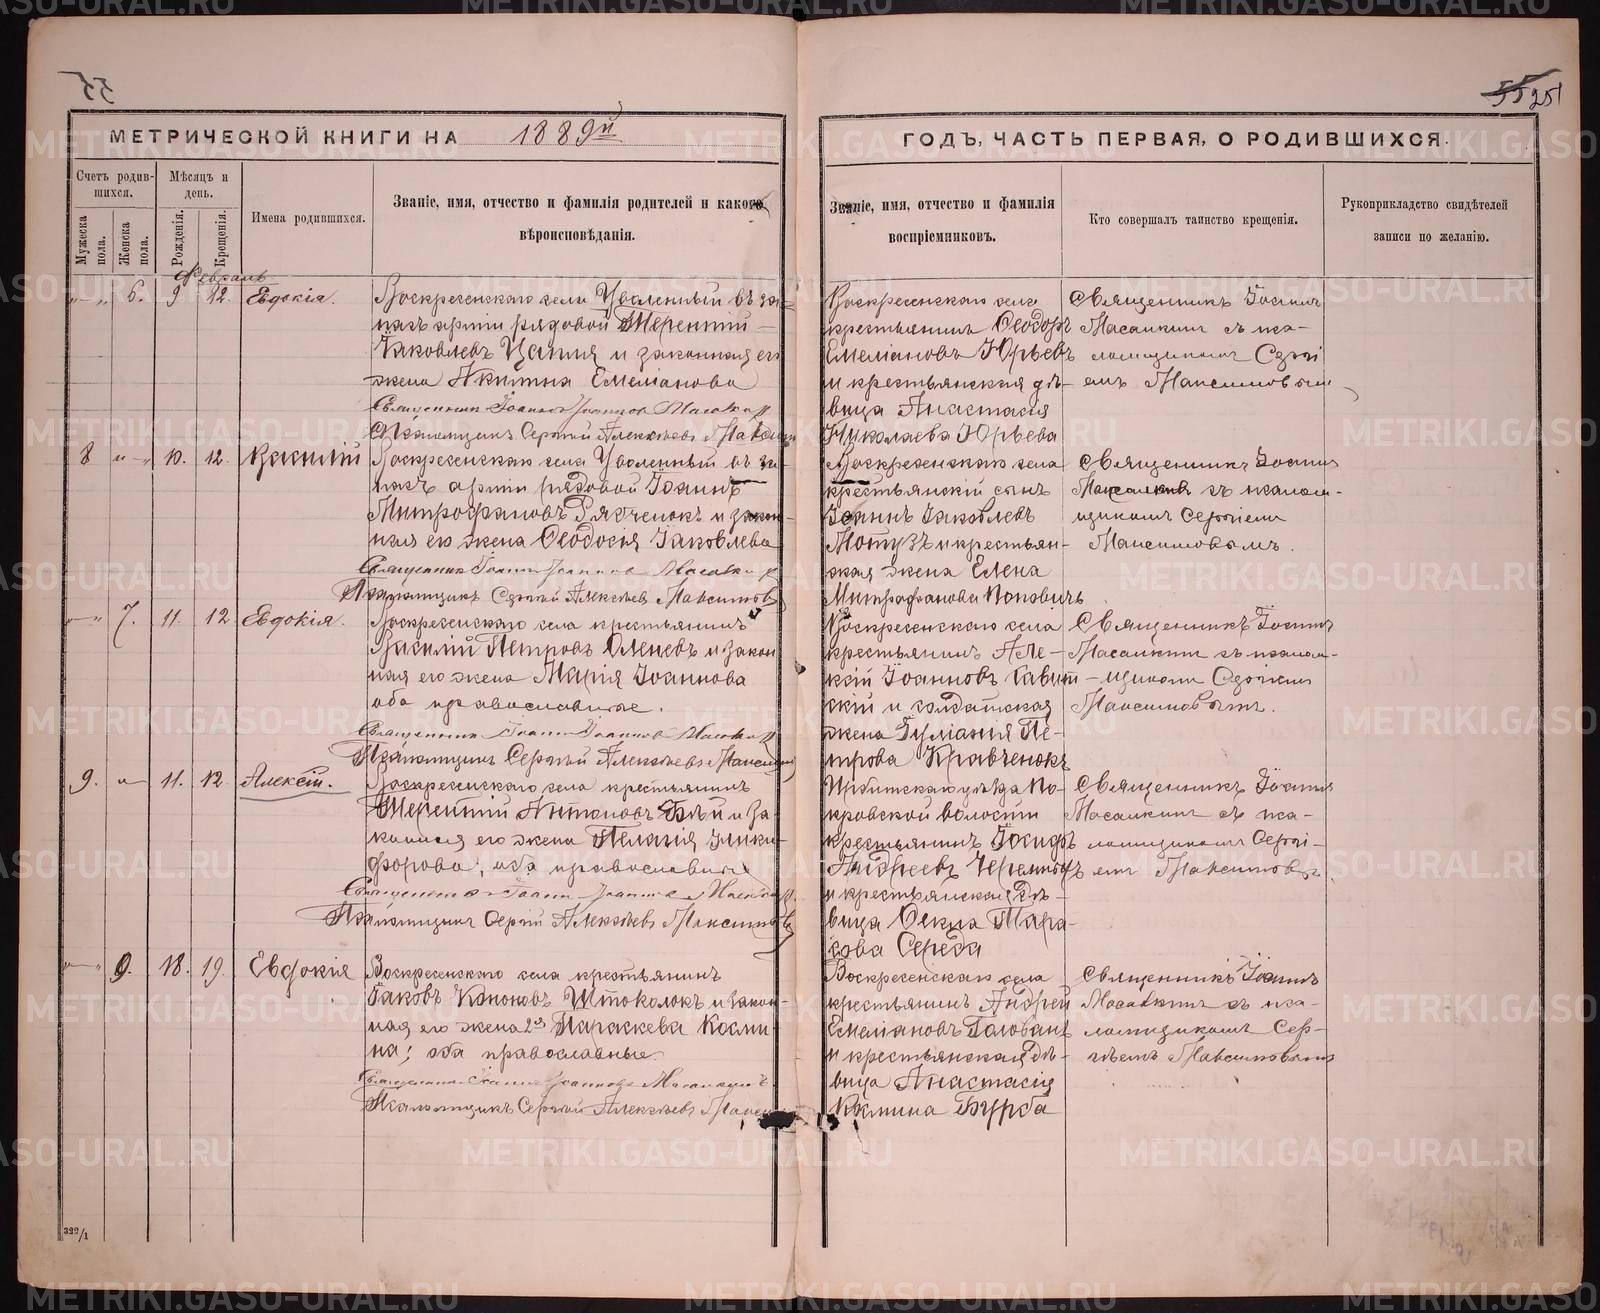 55
55 251
МЕТРИЧЕСКОЙ КНИГИ НА 1889й
ГОДЪ, ЧАСТЬ ПЕРВАЯ, О РОДИВШИХСЯ.
Счетъ родив-
шихся.
Мужеска пола.
Женска пола.
Мѣсяцъ и
день.
Рожденія.
Крещенія.
Имена родившихся.
Званіе, имя, отчество и фамилія родителей и какого
вѣроисповѣданія.
Званіе, имя, отчество и фамилія
воспріемниковъ.
Кто совершалъ таинство крещенія.
Рукоприкладство свидѣтелей
записи по желанію.
Февраль
6. 9 12. Евдокія.
Воскресенскаго села Уволенный въ за-
пасъ арміи рядовой Терентій
Іаковлевъ Цапия и законная его
жена Акилина Емеліанова
Священникъ Іоаннъ Іоанновъ Масалкин
Псаломщикъ Сергій Алексѣевъ Максим
Воскресенскаго села
крестьянинъ Ѳеодоръ
Емеліановъ Юрьевъ
и крестьянская дѣ-
вица Анастасія
Николаева Юрьева
Священникъ Іоаннъ
Масалкинъ съ пса-
ломщикомъ Сергі
емъ Максимовым
8 10. 12. Василій
Воскресенскаго села Уволенный въ за-
пасъ арміи рядовой Іоаннъ
Митрофановъ Рябченокъ и закон-
ная его жена Ѳеодосія Іаковлева
Священникъ Іоаннъ Іоанновъ Масалкин
Псаломщикъ Сергій Алексѣевъ Максимов
Воскресенскаго села
крестьянскій сынъ
Іоаннъ Іаковлевъ
Мотузъ и крестьян-
ская жена Елена
Митрофанова Поповичъ
Священникъ Іоаннъ
Масалкинъ съ псалом-
щикомъ Сергіемъ
Максимовымъ.
7. 11. 12 Евдокія.
Воскресенскаго села крестьянинъ
Василій Петровъ Оленевъ и закон
ная его жена Марія Іоаннова
оба православные.
Священникъ Іоаннъ Іоанновъ Масалкин
Псаломщикъ Сергій Алексѣевъ Максим
Воскресенскаго села
крестьянинъ Але-
ксій Іоанновъ Савит-
скій и солдатская
жена Іуліанія Пе-
трова Кравченокъ
Священникъ Іоаннъ
Масалкинъ съ псалом-
щикомъ Сергіемъ
Максимовымъ.
9. 11. 12. Алексій.
Воскресенскаго села крестьянинъ
Терентій Антоновъ Бѣй и за-
конная его жена Пелагія Ники-
форова, оба православные
Священникъ Іоаннъ Іоанновъ Масалкин
Псаломщикъ Сергій Алексѣевъ Максимовъ
Ирбитскаго уѣзда По-
кровской волости
крестьянинъ Іосифъ
Андреевъ
и крестьянская дѣ-
вица Ѳекла Тара-
сова Середа
Священникъ Іоаннъ
Масалкинъ съ пса-
ломщикомъ Сергі-
емъ Максимовъ
9. 18. 19. Евдокія
Воскресенскаго села крестьянинъ
Іаковъ Кононовъ Штоколокъ и закон-
ная его жена 2я Параскева Косми-
на; оба православные
Священникъ Іоаннъ Іоанновъ Масалкинъ
Псаломщикъ Сергій Алексѣевъ Максим
Воскресенскаго села
крестьянинъ Андрей
Емеліановъ Голованъ
и крестьянская дѣ-
вица Анастасія
Космина Бурба
Священникъ Іоаннъ
Масалкинъ съ пса-
ломщикомъ Сер-
гіемъ Максимовымъ
322/1
METRIKI.GASO-URAL.RU